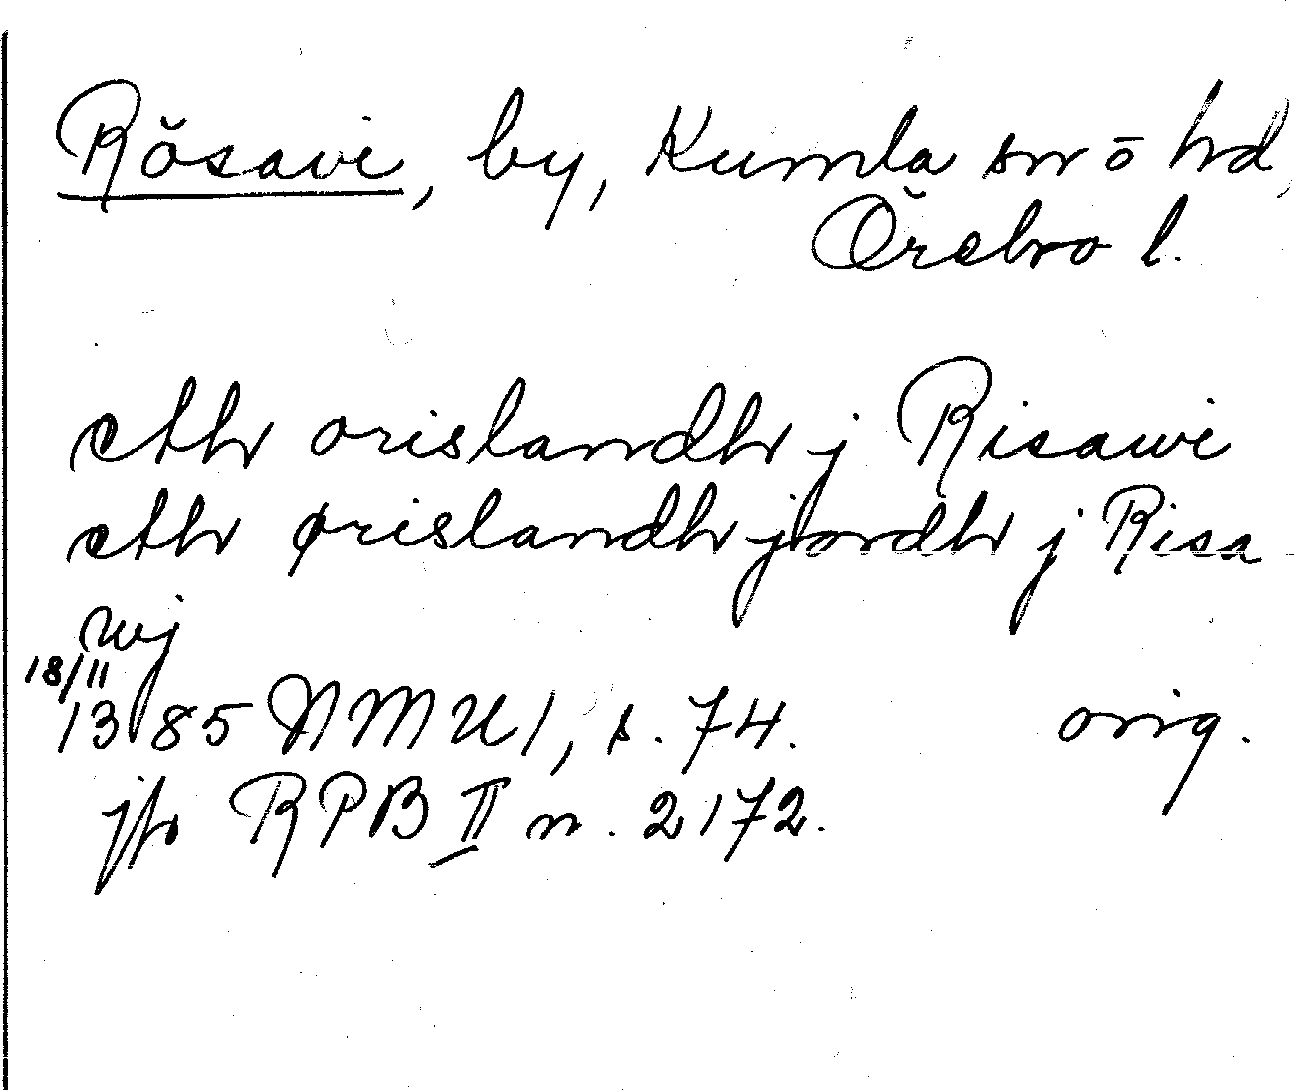 Rösavi, by, Kumla sn ō hd,
Örebro l.
eth orislandh j Risawi
eth ørislandh jordh j Risa
wj
18/11
1385 NMU 1, s. 74. orig.
jfr RPB II n. 2172.